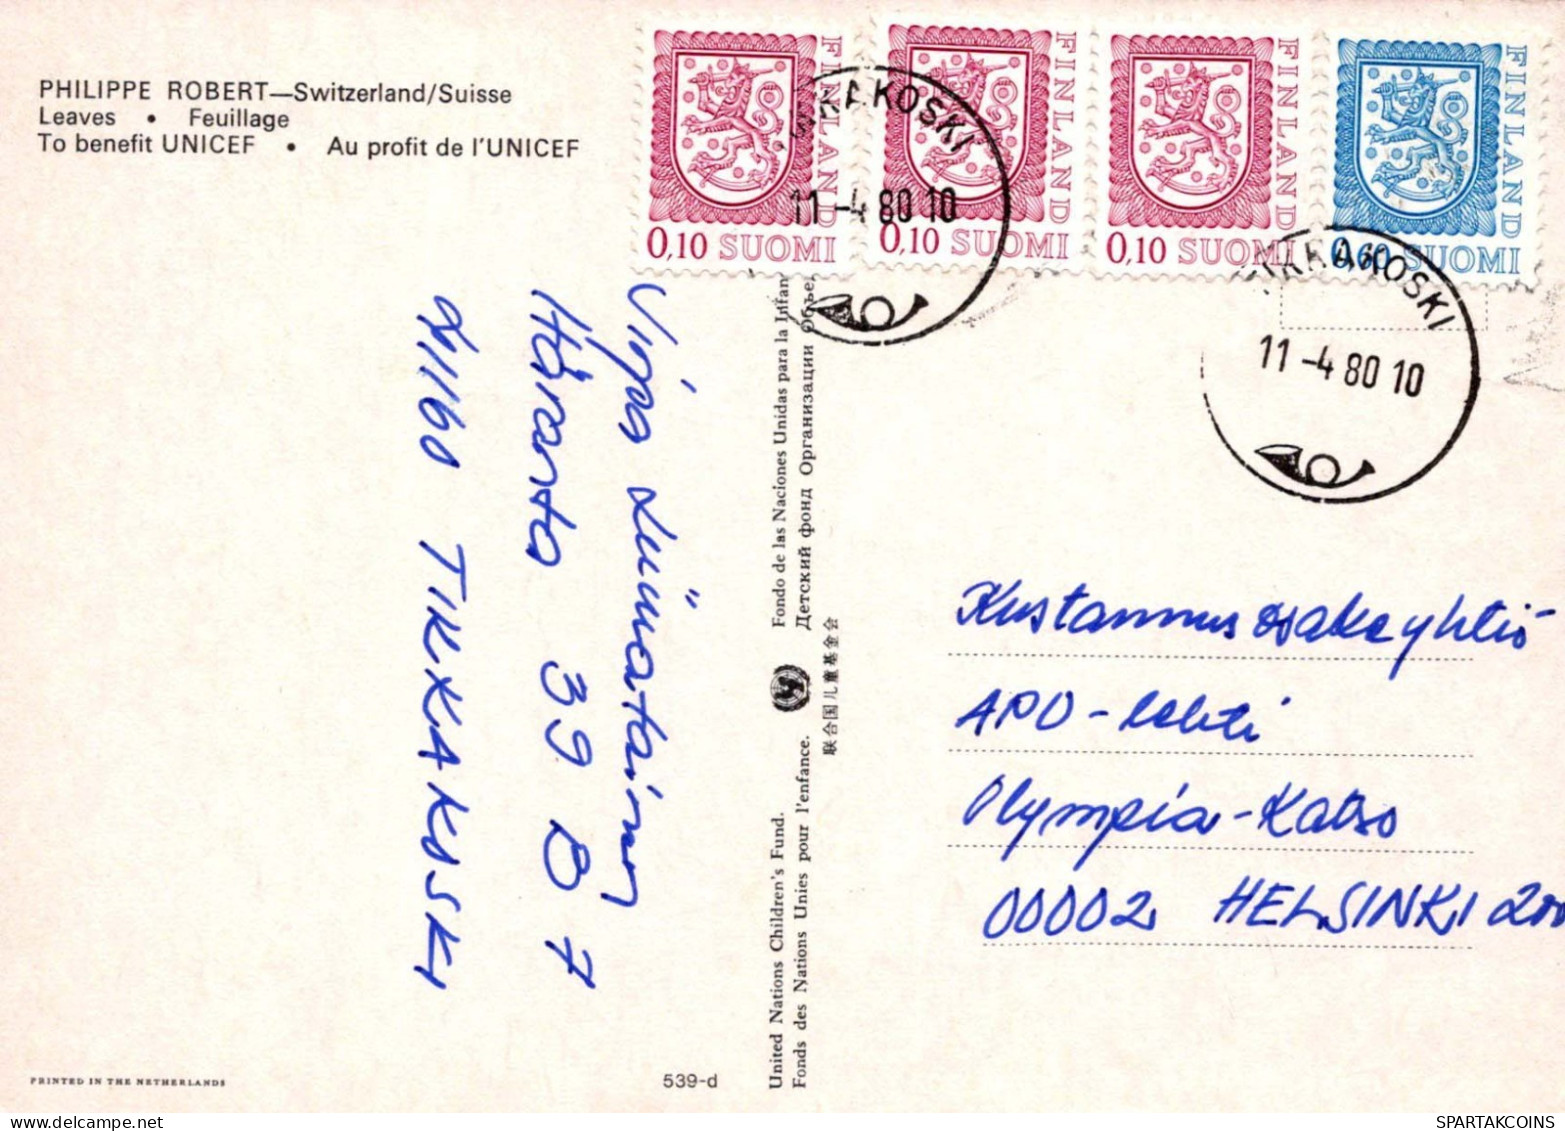 PHILIPPE ROBERT—Switzerland/Suisse
Leaves • Feuillage
To benefit UNICEF • Au profit de l'UNICEF
FINLAND
0,10 SUOMI
FINLAND
0,10 SUOMI
FINLAND
0,10 SUOMI
FINLAND
0,60 SUOMI
KAKOSKI
11-4 80 10
KAKOSKI
11-4 80 10
Harasta 39 B 7
41160 TIKKAKOSKI
United Nations Children's Fund. Fondo de las Naciones Unidas para la Infan
Fonds des Nations Unies pour l'enfance. Детский фонд Организации Объе
联合国儿童基金会
Kustannusosakeyhtiö
APU-lehti
Olympia-Katso
00002 HELSINKI 200
PRINTED IN THE NETHERLANDS
539-d
SPARTAKCOINS